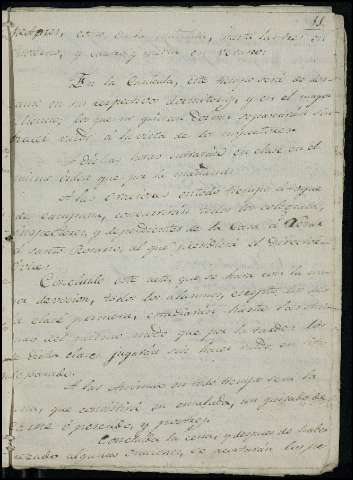 11.
como en la comida, hasta las tres en
Invierno, y cuatro y media en Verano.
En la Canicula, este tiempo será de des-
canso en su respectivo dormitorio, y en el mayor
silencio; los que no quieran dormir
ruido á la vista de los inspectores.
A dichas horas entrarán en clase en el
mismo orden que por la mañana.
A las oraciones en todo tiempo á toque
de campana, concurrirán todos los colegiales,
inspectores, y dependientes de la Casa á rezar
el santo Rosario, al que presidirá el Director
Concluido este acto, que se hará con la ma-
yor devocion, todos los alumnos, excepto los de
la clase primera, estudiarán hasta las Ani-
mas del mismo modo que por la tarde. Los
de dicha clase jugarán sin hacer ruido en sitio
separado.
A las Animas en todo tiempo será la
cena, que consistirá en ensalada, un guisado de
carne ó pescado, y postre.
Concluida la cena, y despues de haber
rezado algunas oraciones, se acostarán